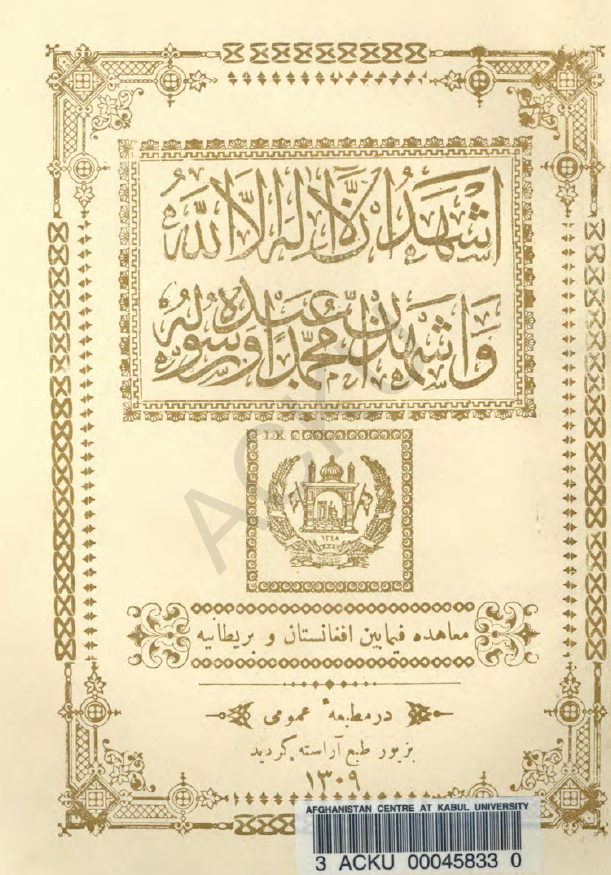 اشهد ان لا اله الا الله
و اشهد ان محمدا عبده و رسوله
١٣٤٨
معاهده فیمابین افغانستان و بریطانیه
در مطبعهٔ عمومی
بزیور طبع آراسته گردید
١٣٠٩
AFGHANISTAN CENTRE AT KABUL UNIVERSITY
3 ACKU 00045833 0
ACKU